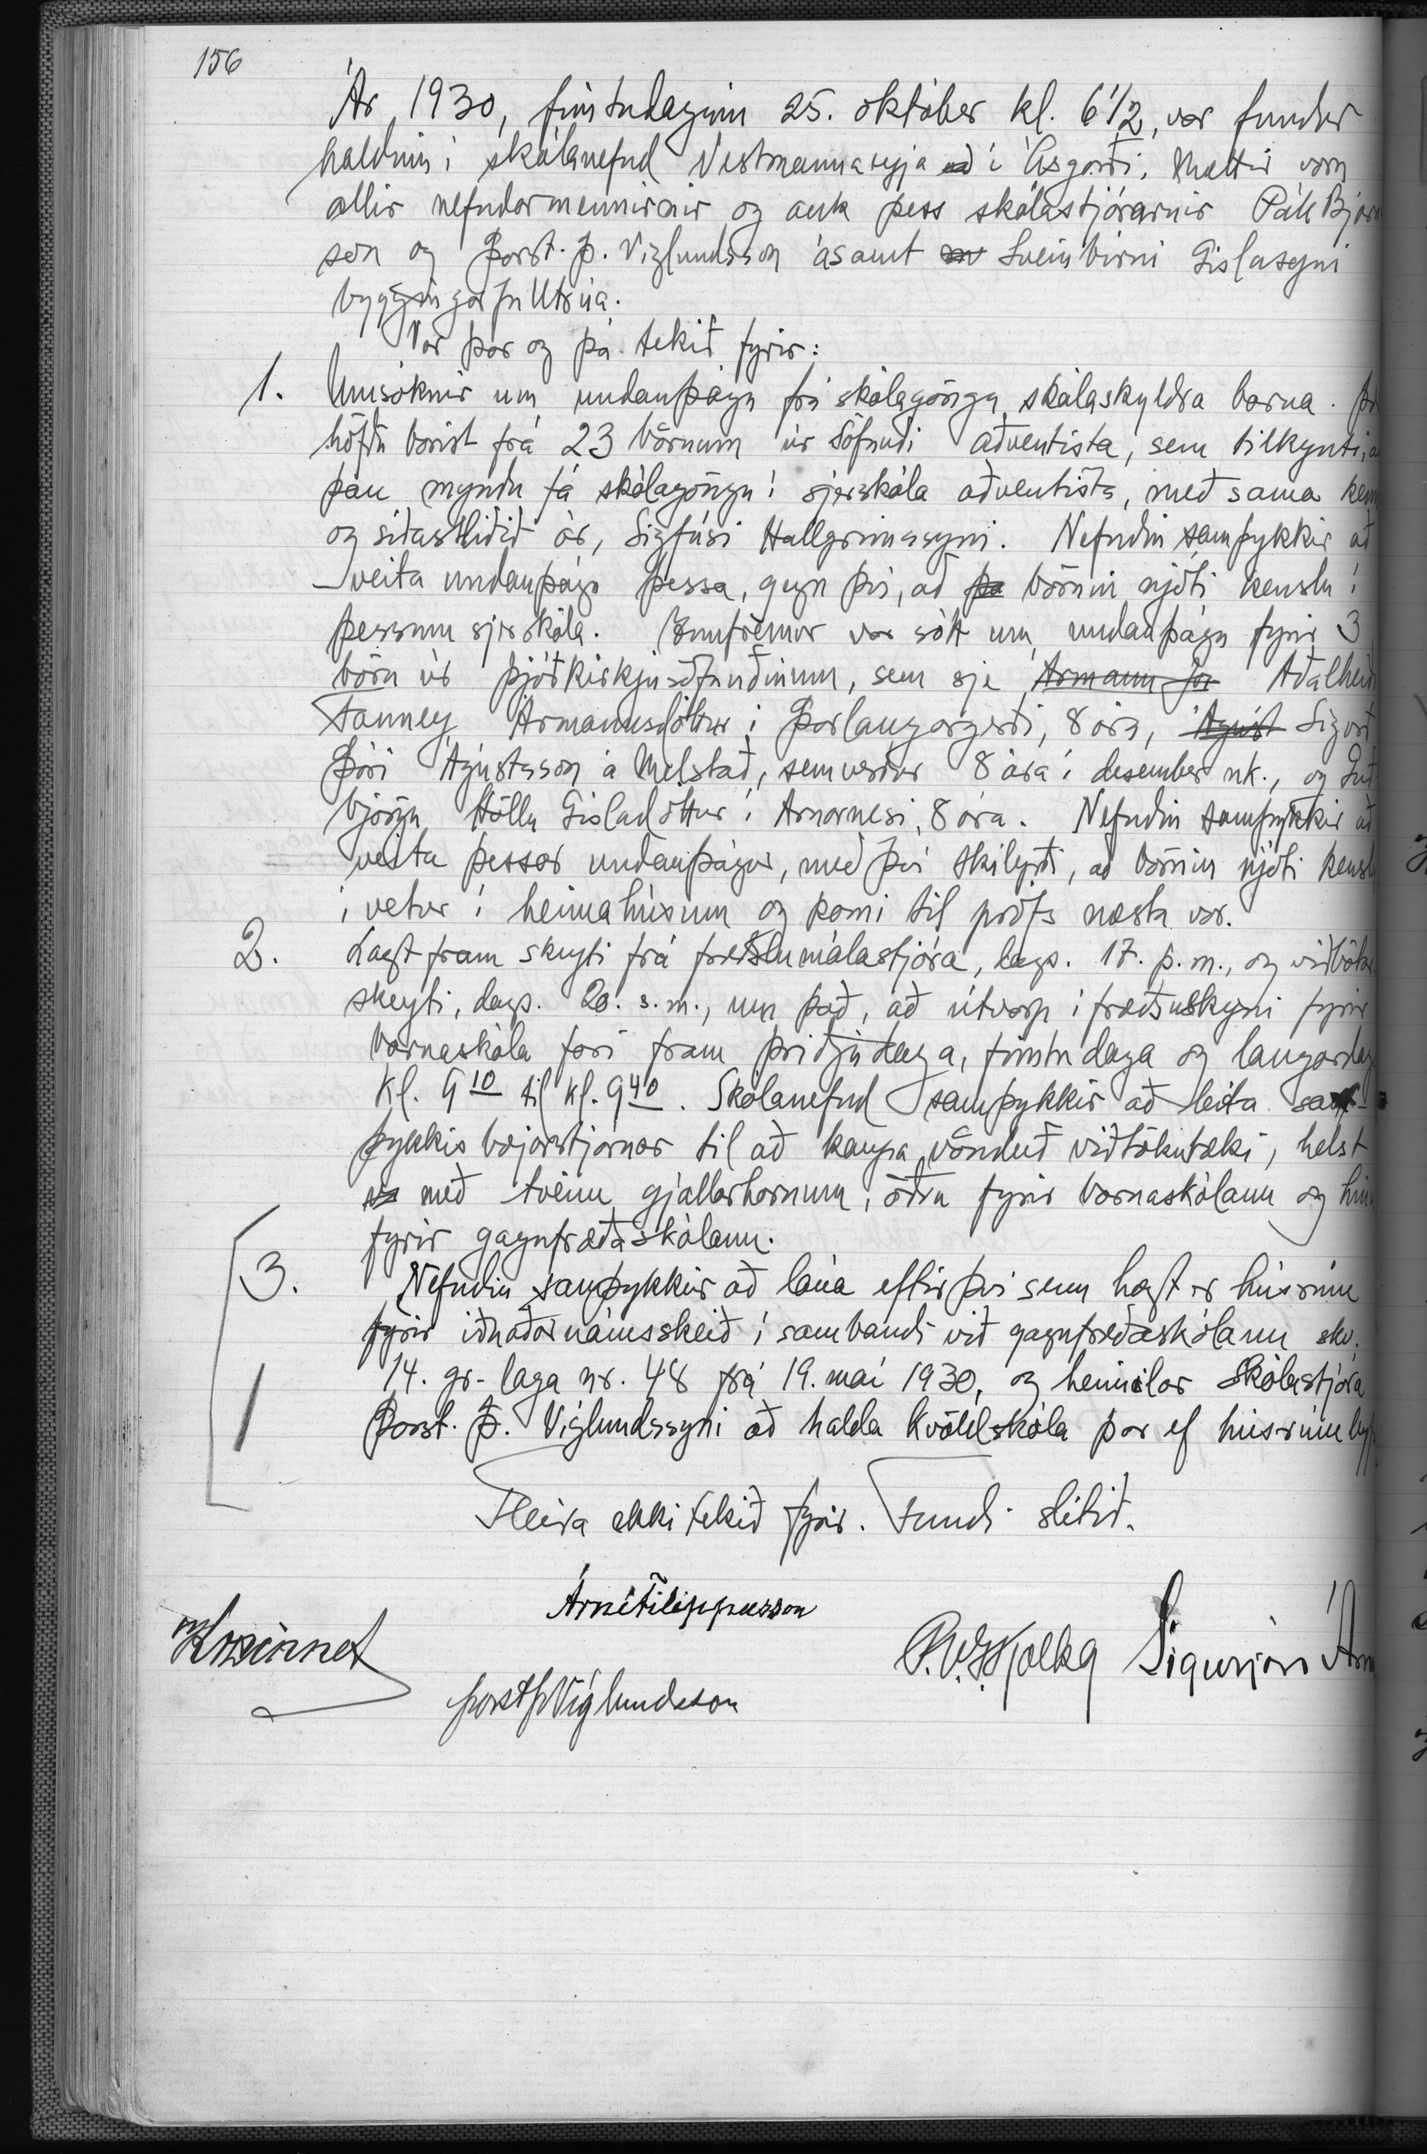 156
Ár 1930, fimtudaginn 25. október kl. 6 1/2, var fundur
haldinn í skólanefnd Vestmannaeyja í Ásgarði. Mættir voru
allir nefndarmennirnir og auk þess skólastjórarnir Páll Bjarna
son og Þorst. Þ. Víglundsson ásamt Sveinbirni Gíslasyni
byggingarfulltrúa.
Var þar og þá tekið fyrir:
1. Umsóknir um undanþágu frá skólagöngu skólaskyldra barna.
höfðu borist frá 23 börnum úr söfnuði aðventista, sem tilkynti, að
þau myndu fá skólagöngu í sjerskóla aðventista, með sama
og síðastliðið ár, Sigfúsi Hallgrímssyni. Nefndin samþykkir að
veita undanþágu þessa, gegn því, að börnin njóti kenslu í
þessum sjerskóla. Ennfremur var sótt um undanþágu fyrir 3
börn úr þjóðkirkjusöfnuðinum, sem sje Ármann Aðalheiði
Fanney Ármannsdóttur í Þorlaugargerði, 8 ára, Ágúst Sigurð
Þóri Ágústsson á Melstað, sem verður 8 ára í desember nk., og Guð
björgu Höllu Gísladóttur í Arnarnesi, 8 ára. Nefndin samþykkir að
veita þessar undanþágur, með því skilyrði, að börnin njóti kenslu
í vetur í heimahúsum og komi til prófs næsta vor.
2. Lagt fram skeyti frá fræðslumálastjóra, dags. 17. þ.m., og viðbótar
skeyti, dags. 20. s.m., um það, að útvarp í fræðsluskyni fyrir
barnaskóla fari fram þriðjudaga, fimtudaga og laugardaga
kl. 9 10 til kl. 9 40. Skólanefnd samþykkir að leita sam-
þykkis bæjarstjórnar til að kaupa vönduð viðtökutæki, helst
með tveim gjallarhornum, öðru fyrir barnaskólann og hinu
fyrir gagnfræðaskólann.
3. Nefndin samþykkir að lána eftir því sem hægt er húsrúm
fyrir iðnaðarnámsskeið í sambandi við gagnfræðaskólann skv.
14. gr. laga nr. 48 frá 19. maí 1930, og heimilar skólastjóra
Þorst. Þ. Víglundssyni að halda kvöldskóla þar ef húsrúm leyf
Fleira ekki tekið fyrir. Fundi slitið.
Árni Filippusson
P.V.G. Kolka Sigurjón Árna
Þorst Þ Víglundsson